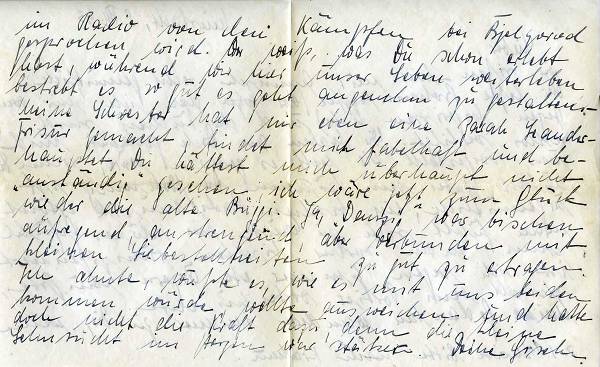 im Radio, von den Kämpfen bei Bjelgorod
gesprochen wird. Wer weiß, was Du schon erlebt
hast, während wir hier unser Leben weiterleben
bestrebt es so gut es geht angenehm zu gestalten.
Meine Schwester hat mir eben eine Zarah Leander-
frisur gemacht, findet mich fabelhaft und be-
hauptet Du hättest mich überhaupt nicht
"anständig" gesehen, ich wäre jetzt zum Glück
wieder die alte
Ja, "Danzig" war bischen
aufregend, anstrengend aber verbunden mit
kleinen zu gut zu ertragen.
Ich ahnte, wußte es, wie es mit uns beiden
kommen würde, wollte ausweichen und hatte
doch nicht die Kraft dazu denn die kleine
Sehnsucht im Herzen war stärker. Deine